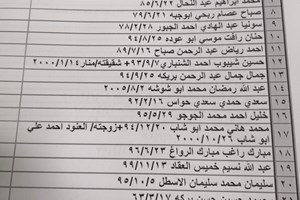 محمد ابراهيم عبد النحال ٨٥/٦/٢١
صباح عصام ربحي ابوجبه ٧٩/٦/٢١
سونيا عبد الهادي احمد الجبور ٧٨/٢/٢٨
حنان رافت موسى ابو عوده ٩٤/٨/٢٥
احمد رياض عبد الرحمن صباح ٨٩/٧/١٦ ١١
حسين شبيوب احمد الشنباري ٩٣/٩/٧+شقيقته/منار ٢٠٠٠/١/١٤ ١٢
جمال جمال عبد الرحمن بريكه ٩٤/٩/٢٥ ١٣
عبد الله رمضان محمد ابو شوشه ٢٠٠٥/٨/٢ ١٤
سعدي حمدي سعدي حواس ٩٢/٢/١٦ ١٥
خليل احمد محمد الجوجو ٩٥/٥/٢٩ ١٦
محمد هاني محمد ابو شاب ٩٤/١٢/٢٠+زوجته/ العنود احمد علي ١٧
ابو شاب ٢٠٠٠/١٠/٢٦
مبارك راغب مبارك الرواغ ٩٦/٦/٢٣ ١٨
عبد الله نسيم خميس العقاد ٩٩/١١/١٣ ١٩
سليمان محمد سليمان الاسطل ٩٥/١٠/٥ ٢٠
حسين بريكه ٦٣/٣/١٧ ٢١